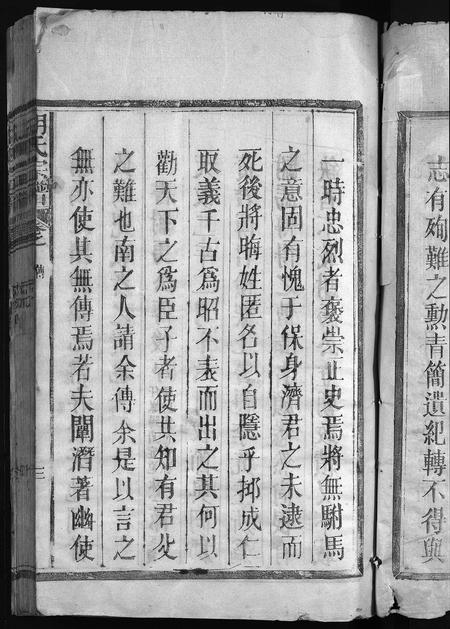 志有殉難之勲青簡遺紀轉不得與
一時忠烈者褒崇正史焉將無駙馬
之意固有愧于保身濟君之未逮而
死後將晦姓匿名以自隱乎抑成仁
取義千古爲昭不表而出之其何以
勸天下之爲臣子者使共知有君父
之難也南之人請余傳余是以言之
無亦使其無傳焉若夫闡潛著幽使
氏宗譜卷之